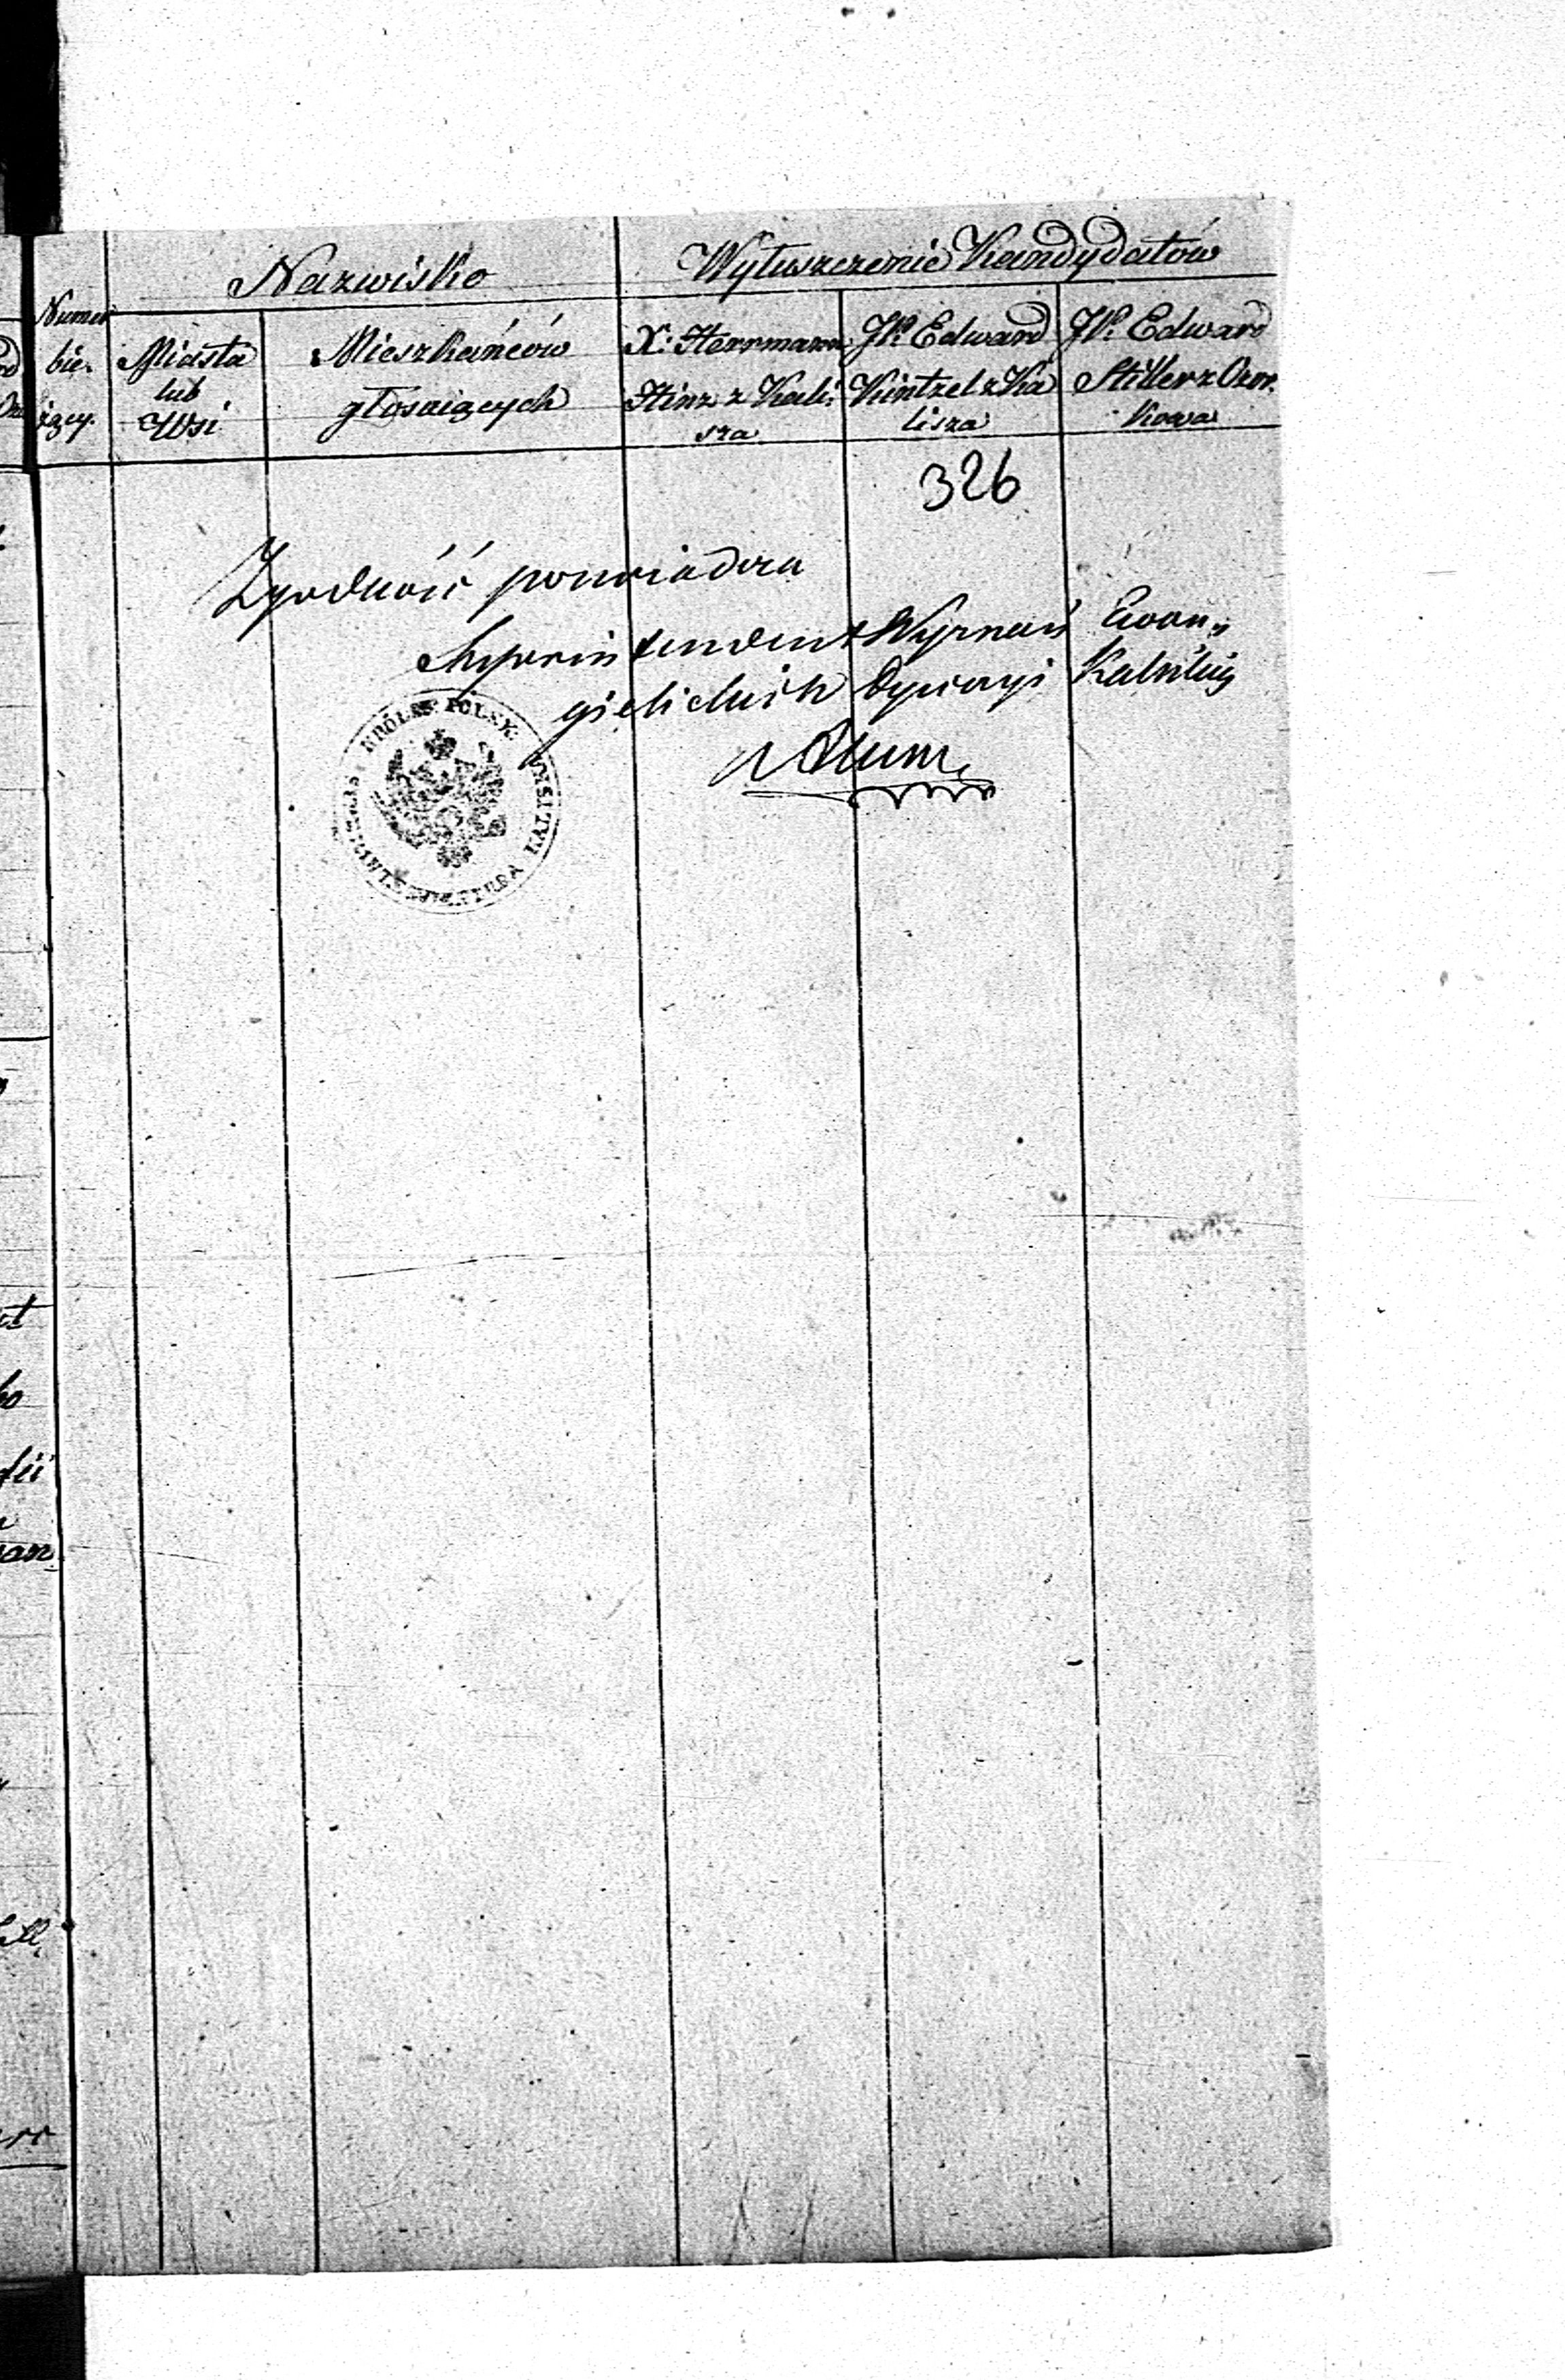 Nazwisko
Wyłuszczenie Kandydatów
Numer
bie-
żący.
Miasta
lub
Wsi
Mieszkańców
głosuiących
X. Herrmann
Hinz z Kali-
sza
JP. Edward
Kintzel z Ka
lisza
JP. Edward
Stiller z Ozor-
kowa
326
Zgodność poświadcza
Superintendent Wyznań Ewan„
gielickich Dyecezyi Kaliskiey
KRÓLES: POLSK: